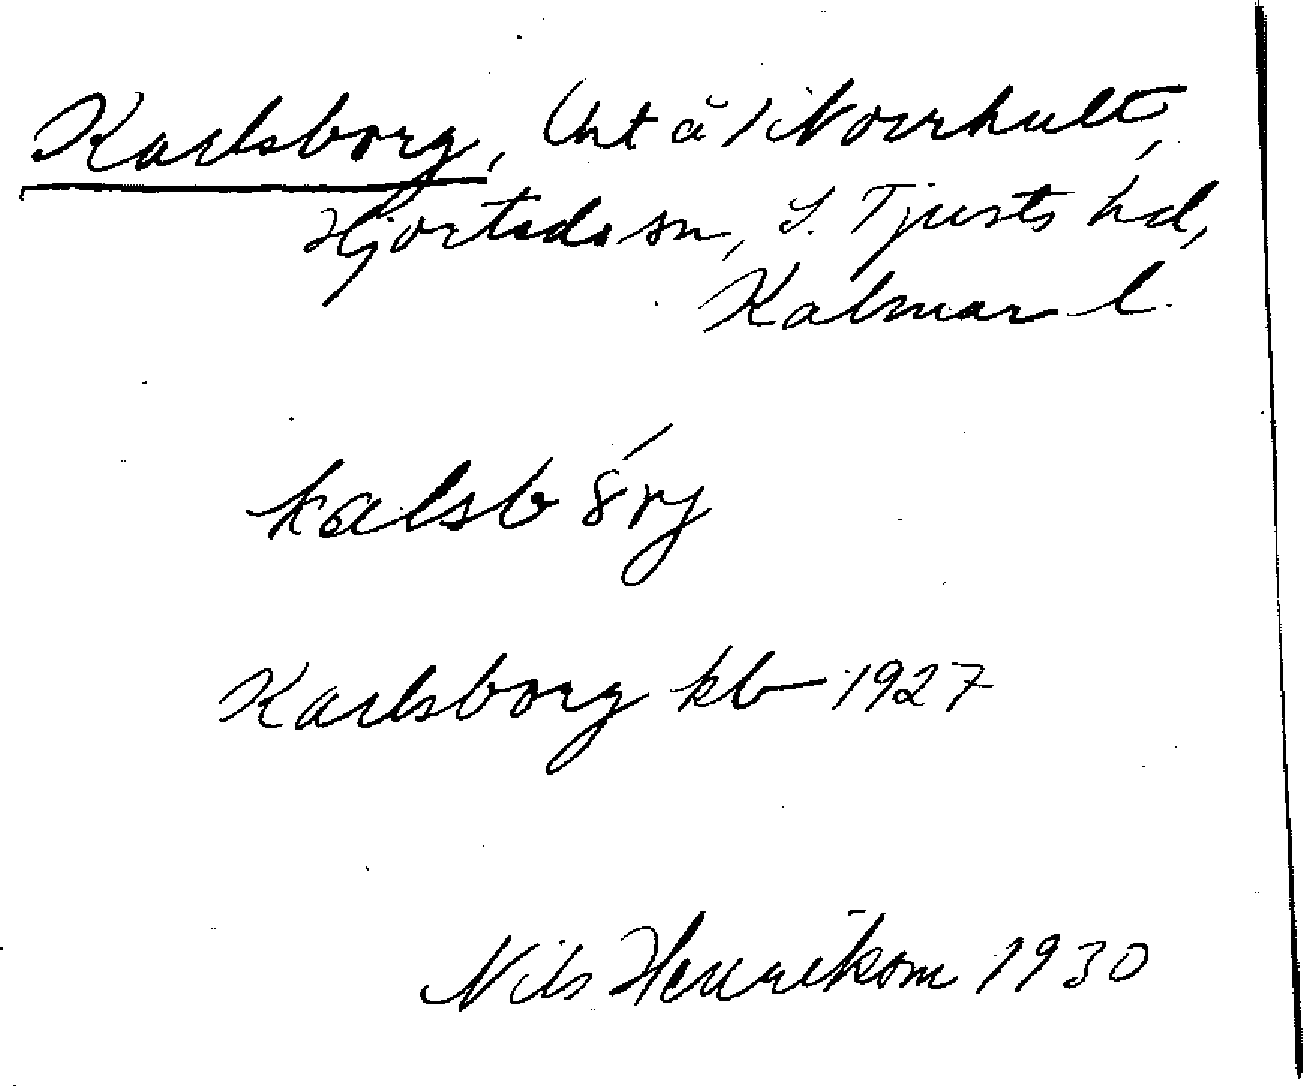 Karlsborg, lht å 1 Norrhult,
Hjorteds sn, S. Tjusts hd,
Kalmar l.
kalsbórj
Karlsborg kb 1927
Nils Henrikson 1930